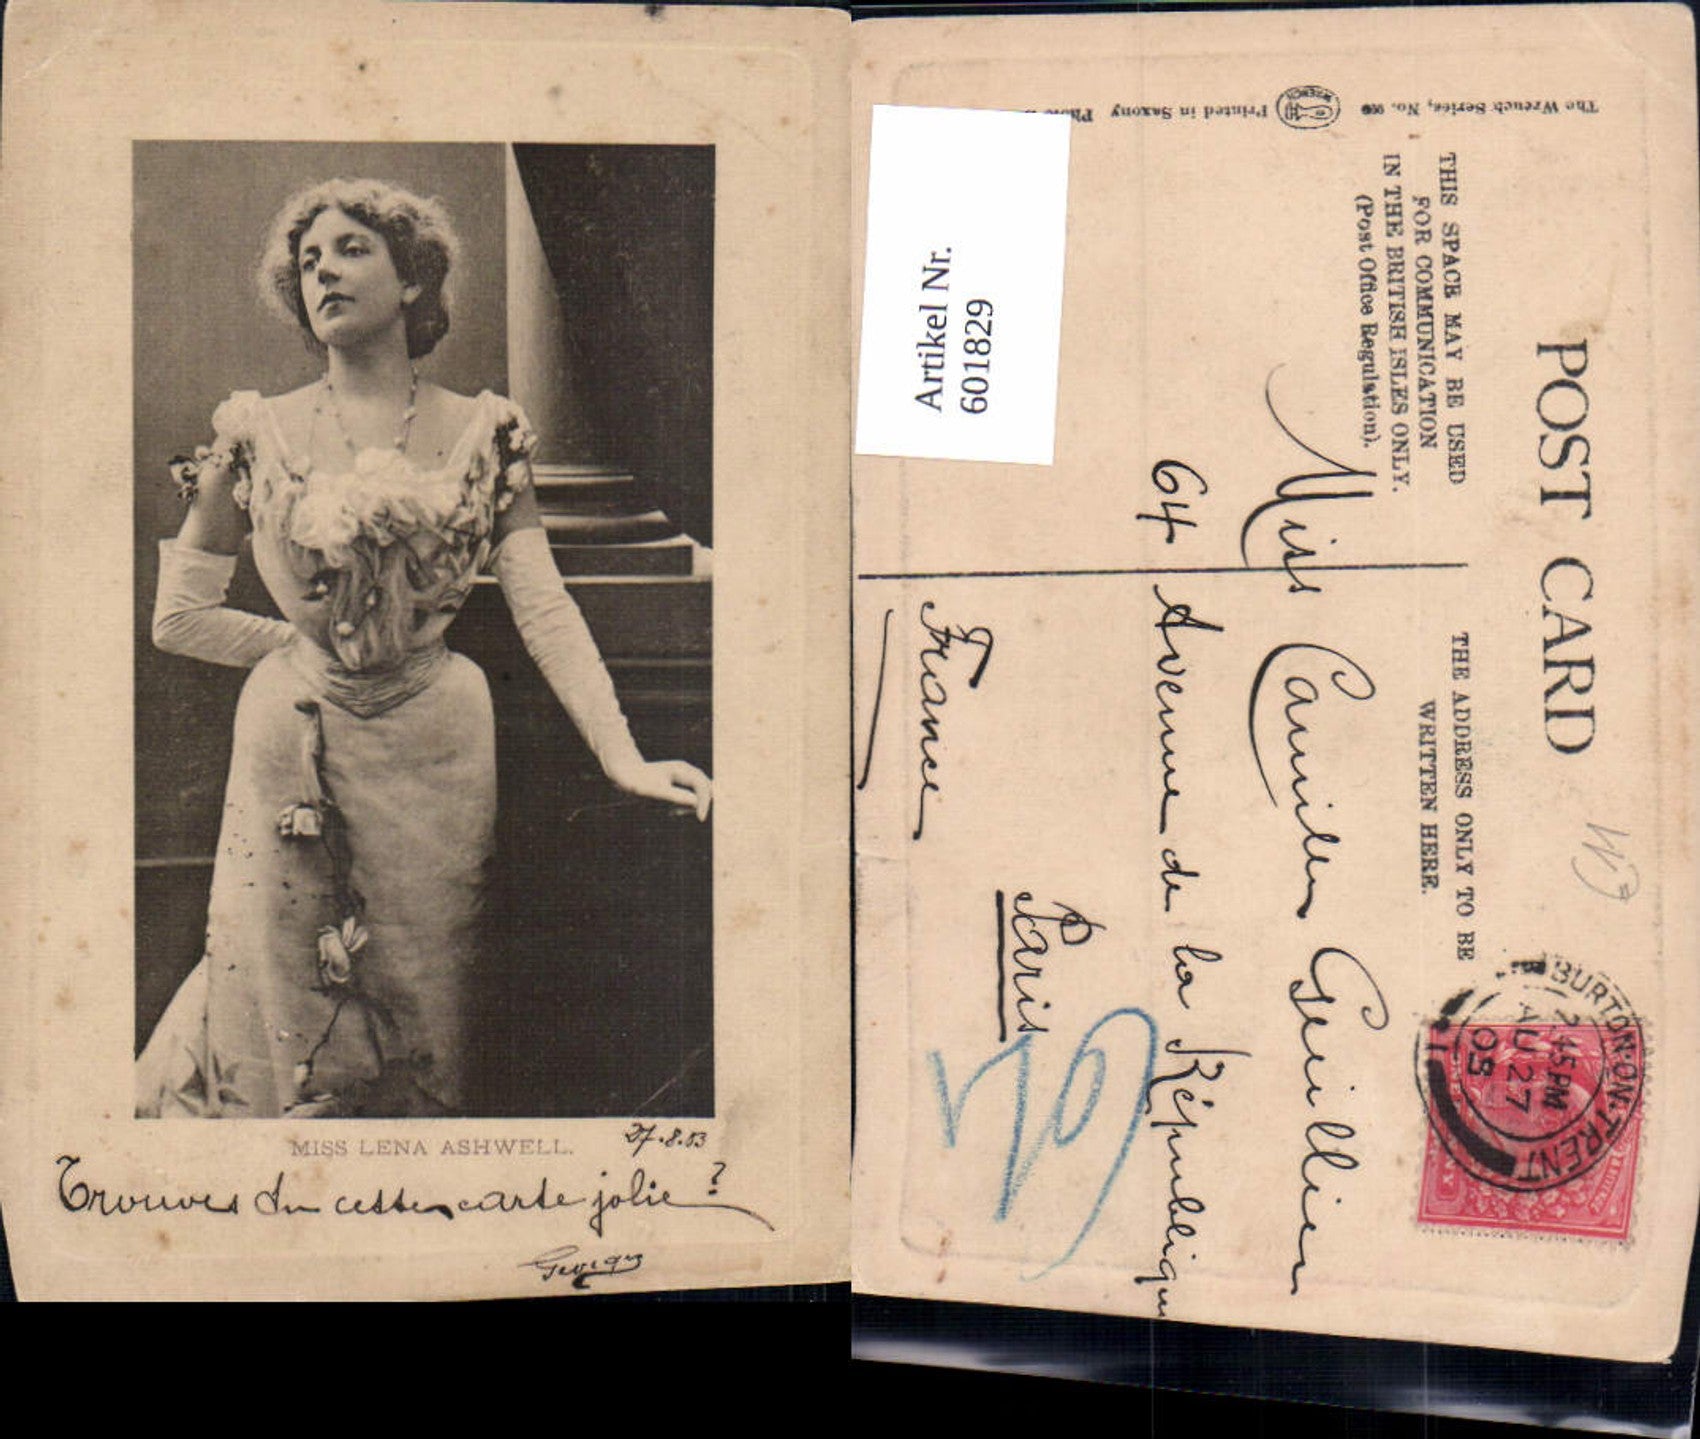 MISS LENA ASHWELL.
27.8.03
Trouves tu cette carte jolie?
Georges
POST CARD
THIS SPACE MAY BE USED
FOR COMMUNICATION
IN THE BRITISH ISLES ONLY.
(Post Office Regulation).
THE ADDRESS ONLY TO BE
WRITTEN HERE.
The Wrench Series, No.
WRENCH
Printed in Saxony
BURTON-ON-TRENT
2.45 PM
AU 27
03
Miss Camille Guillien
64 Avenue de la République
Paris
France
Artikel Nr.
601829